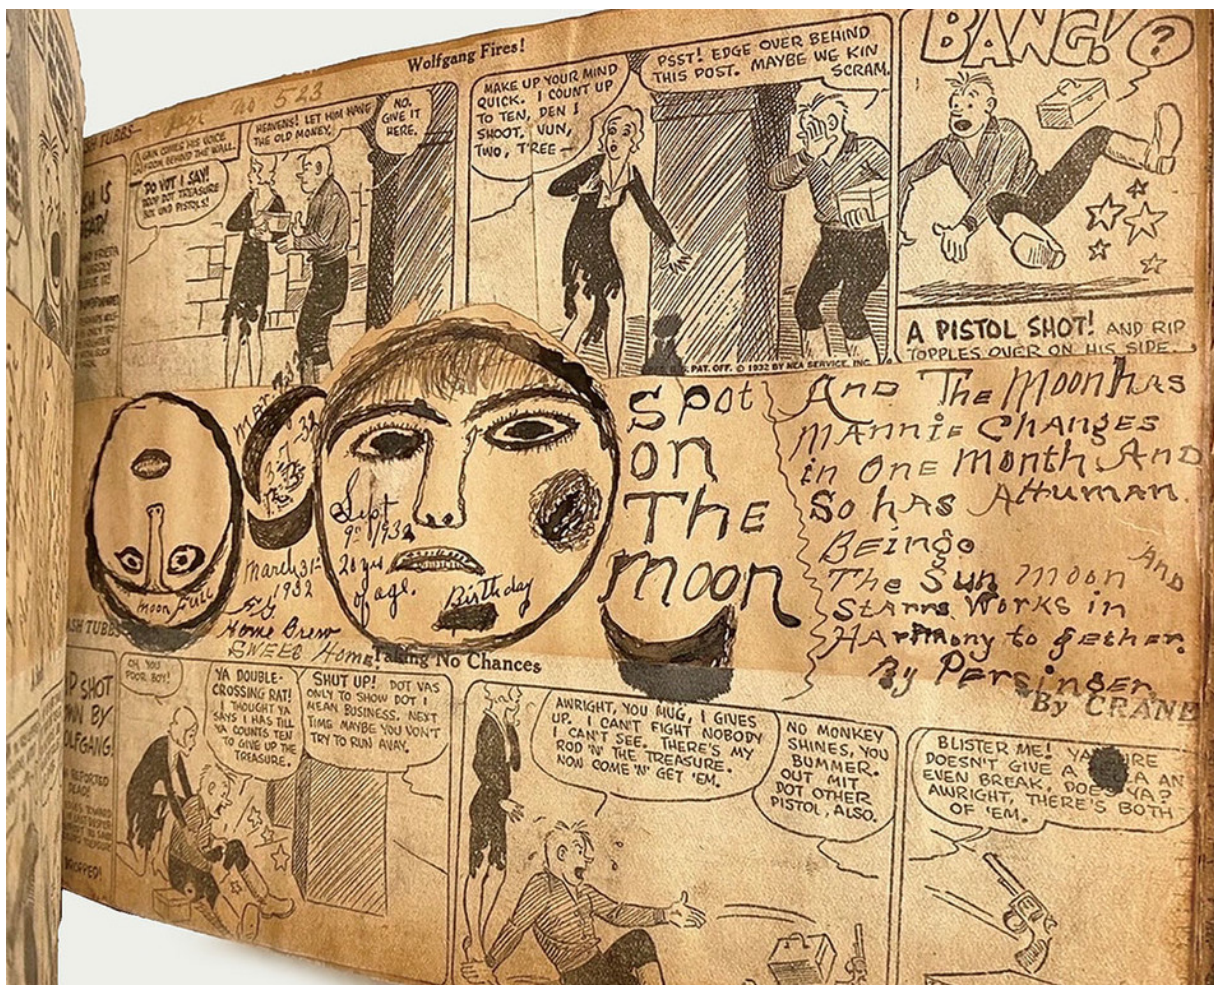 Wolfgang Fires!
No 523
SH TUBBS—
A GAIN COMES HIS VOICE
FROM BEHIND THE WALL.
DO VOT I SAY!
DROP DOT TREASURE
BOX UND PISTOLS!
HEAVENS! LET HIM HAVE
THE OLD MONEY.
NO.
GIVE IT
HERE.
MAKE UP YOUR MIND
QUICK. I COUNT UP
TO TEN, DEN I
SHOOT. VUN,
TWO, T'REE—
PSST! EDGE OVER BEHIND
THIS POST. MAYBE WE KIN
SCRAM.
BANG!
?
A PISTOL SHOT! AND RIP
TOPPLES OVER ON HIS SIDE.
PAT. OFF. © 1932 BY NEA SERVICE, INC.
Moon Full
March 31st
1932
Home Brew
SWEED Home!
Sept
9th 1932
20 yrs
of age.
Birthday
Spot
on
The
moon
And The Moon has
Mannie Changes
in One Month And
So has A Human.
Beingo
And
The Sun Moon
Starrs Works in
Harmony to gether.
By Persinger
ASH TUBBS
Taking No Chances
By CRANE
IP SHOT
WN BY
OLFGANG!
OH, YOU
POOR BOY!
YA DOUBLE-
CROSSING RAT!
I THOUGHT YA
SAYS I HAS TILL
YA COUNTS TEN
TO GIVE UP THE
TREASURE.
SHUT UP! DOT VAS
ONLY TO SHOW DOT I
MEAN BUSINESS. NEXT
TIME MAYBE YOU VON'T
TRY TO RUN AVAY.
AWRIGHT, YOU MUG, I GIVES
UP. I CAN'T FIGHT NOBODY
I CAN'T SEE. THERE'S MY
ROD 'N' THE TREASURE.
NOW COME 'N' GET 'EM.
NO MONKEY
SHINES, YOU
BUMMER.
OUT MIT
DOT OTHER
PISTOL, ALSO.
BLISTER ME! YA URE
DOESN'T GIVE A A AN
EVEN BREAK, DOES YA?
AWRIGHT, THERE'S BOTH
OF 'EM.